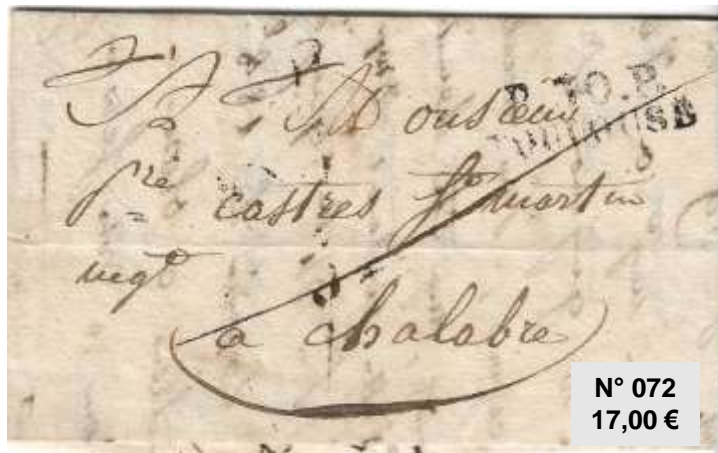 P. 30. P.
TOULOUSE
Monsieur
P.re castres St martin
neg.t
a chalabre
N° 072
17,00 €